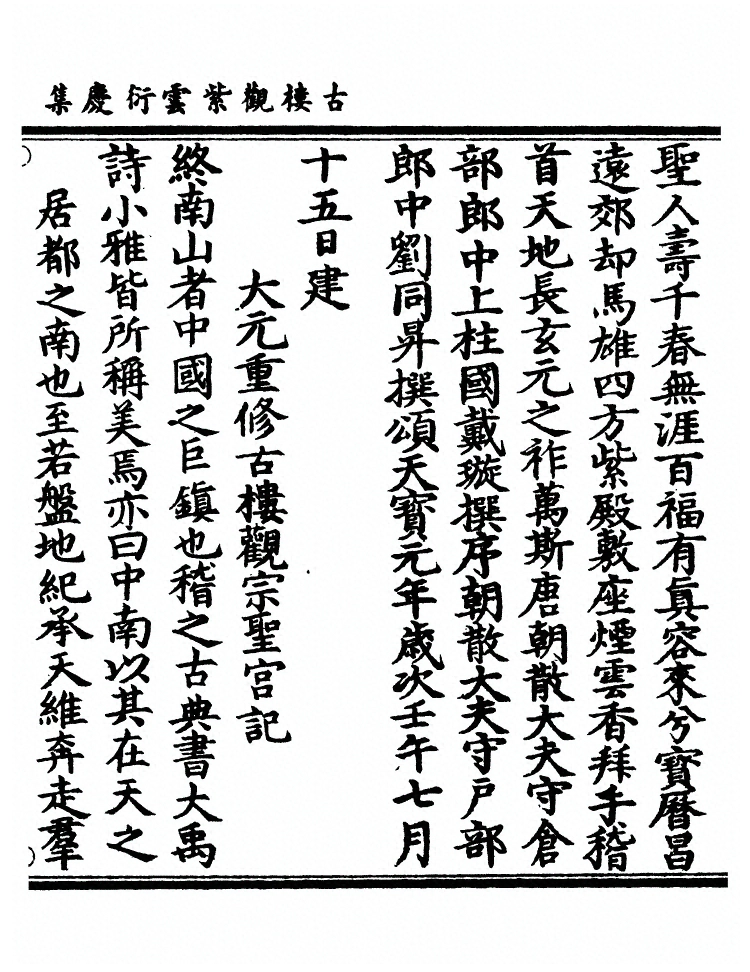 古樓觀紫雲衍慶集
聖人壽千春無涯百福有眞容來兮寶曆昌
遠郊却馬雄四方紫殿敷座煙雲香拜手稽
首天地長玄元之祚萬斯唐朝散大夫守倉
部郎中上柱國戴璇撰序朝散大夫守戶部
郎中劉同昇撰頌天寶元年歲次壬午七月
十五日建
大元重修古樓觀宗聖宮記
終南山者中國之巨鎮也稽之古典書大禹
詩小雅皆所稱美焉亦曰中南以其在天之
居都之南也至若盤地紀承天維奔走羣